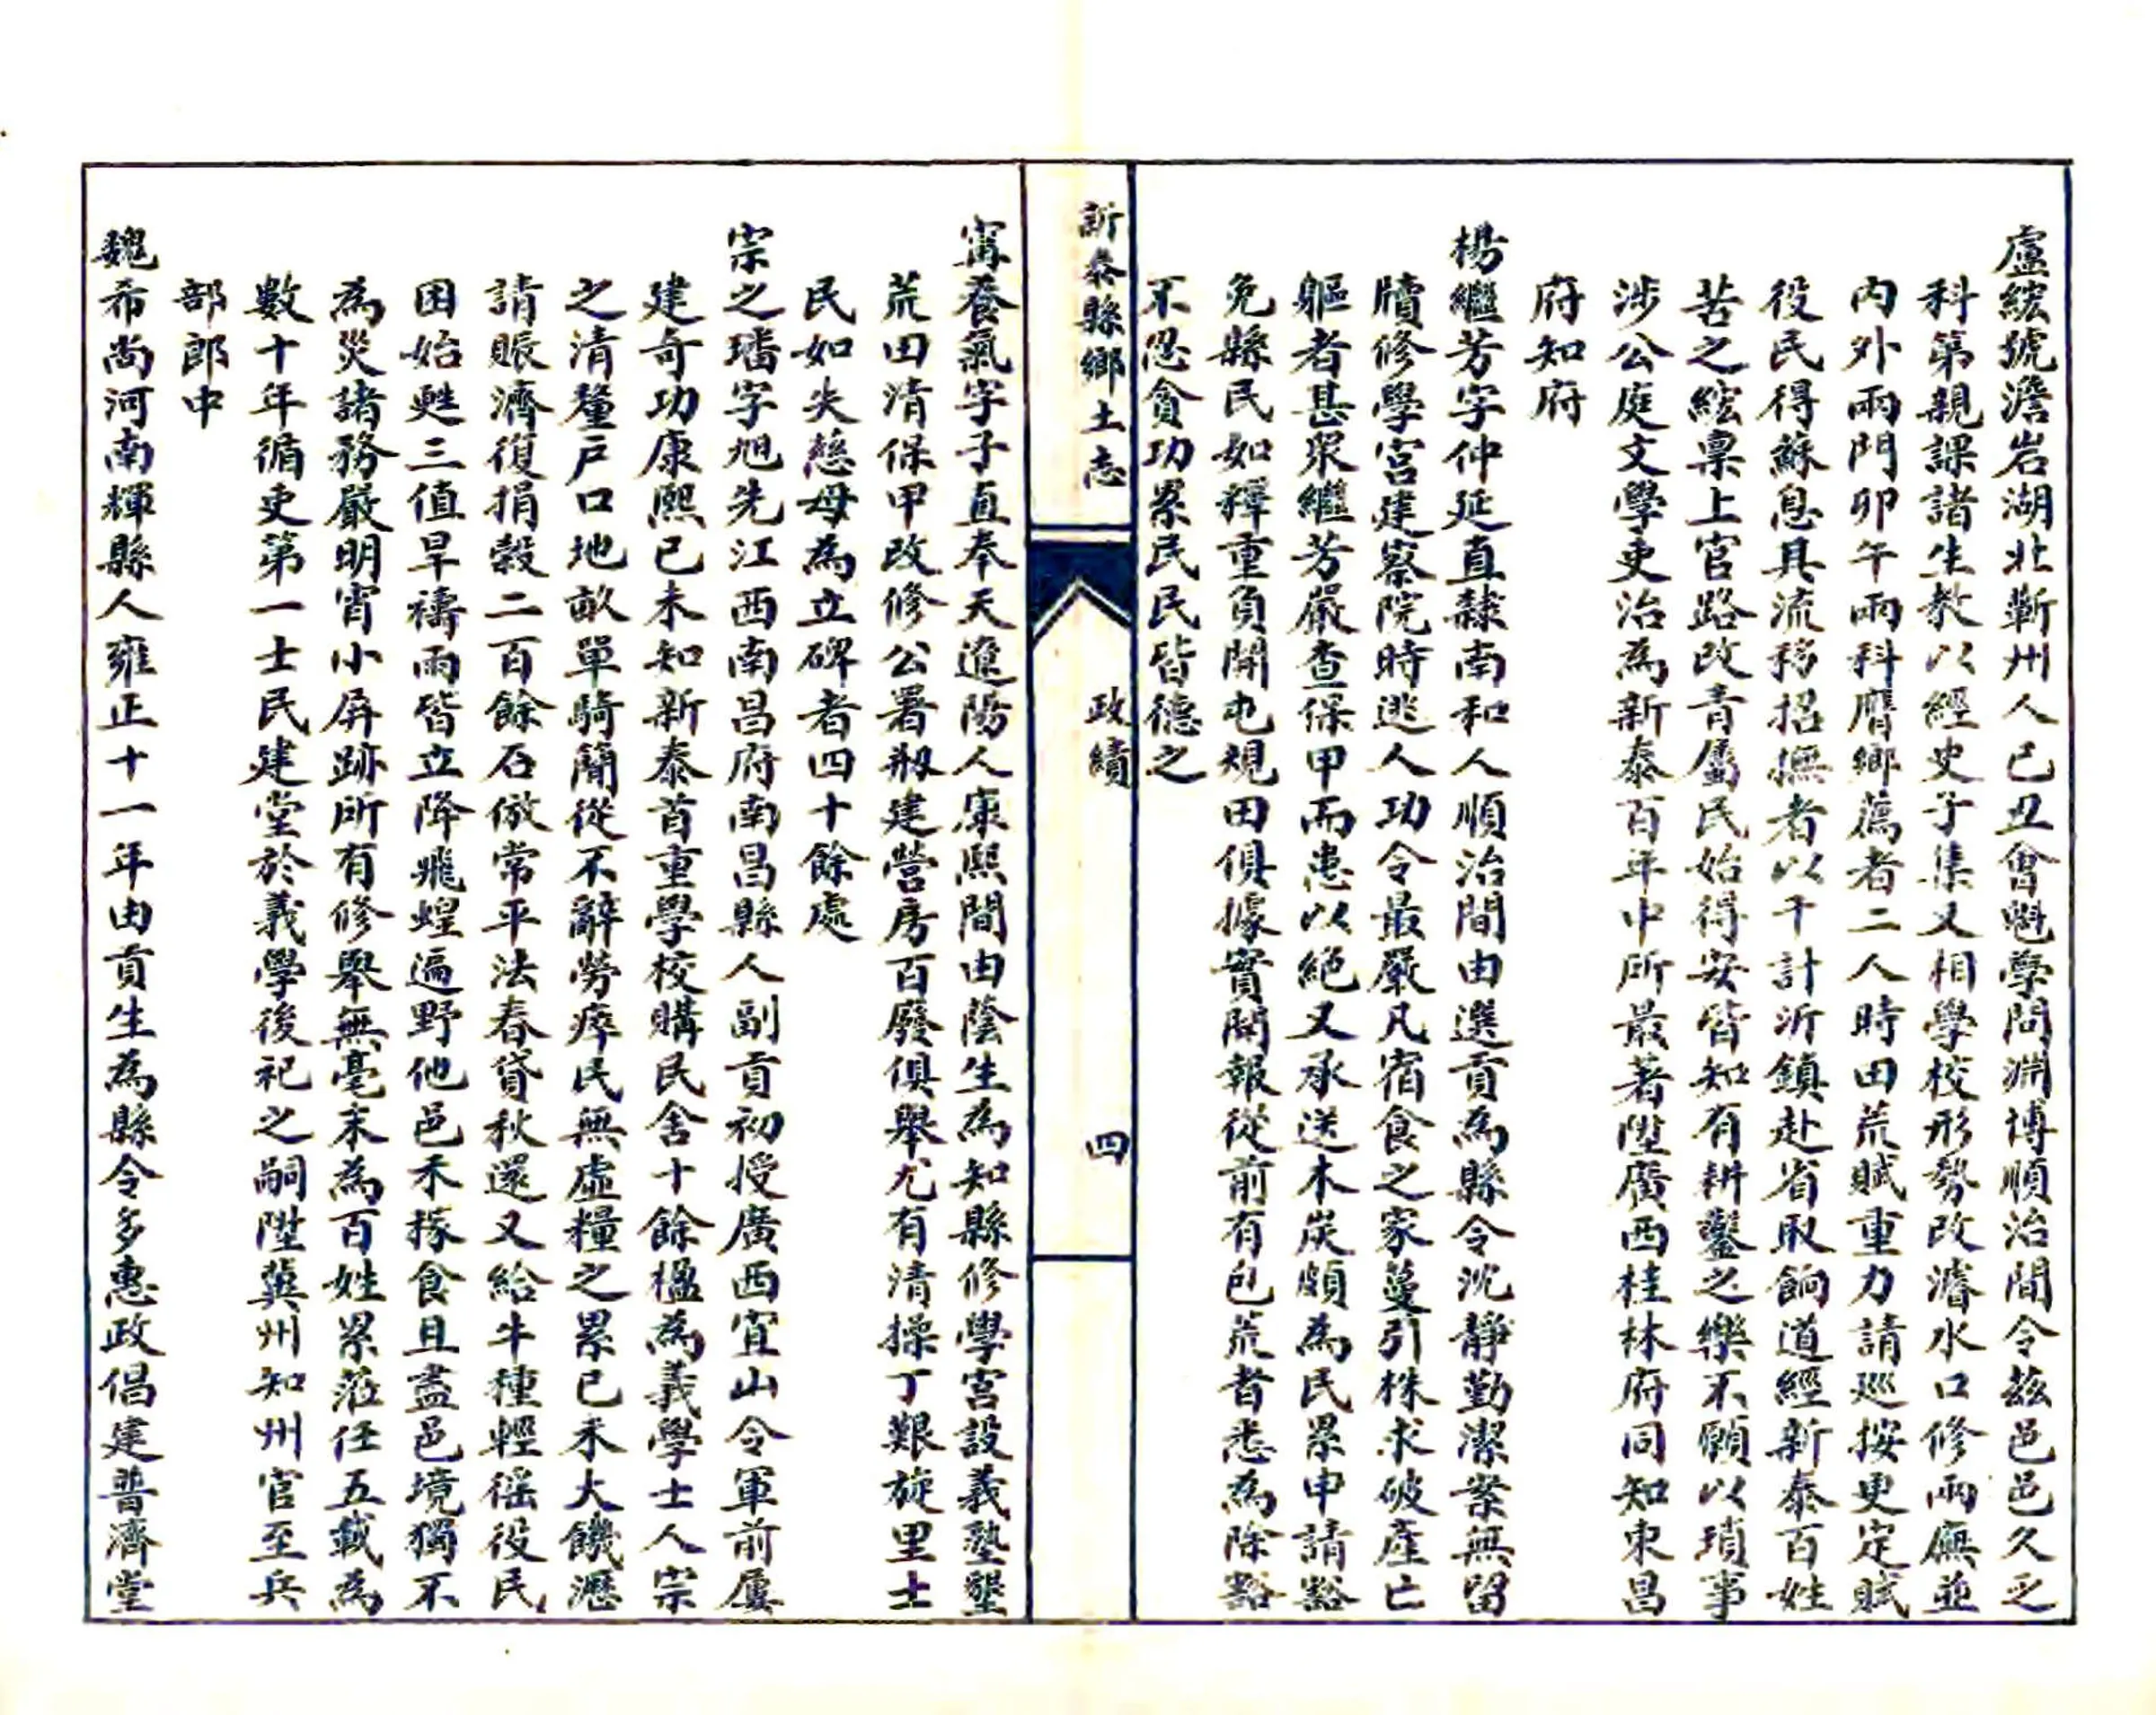 盧綋號澹岩湖北蘄州人己丑會魁學問淵博順治間令茲邑邑久乏
科第親課諸生教以經史子集又相學校形勢改濬水口修兩廡並
內外兩門卯午兩科膺鄉薦者二人時田荒賦重力請巡按更定賦
役民得蘇息具流移招撫者以千計沂鎮赴省取餉道經新泰百姓
苦之綋稟上官路改青屬民始得安皆知有耕鑿之樂不願以瑣事
涉公庭文學吏治為新泰百年中所最著陞廣西桂林府同知東昌
府知府
楊繼芳字仲延直隸南和人順治間由選貢為縣令沈靜勤潔案無留
牘修學宮建察院時逃人功令最嚴凡宿食之家蔓引株求破產亡
軀者甚眾繼芳嚴查保甲而患以絕又承送木炭頗為民累申請豁
免縣民如釋重負開屯規田俱據實開報從前有包荒者悉為除豁
不忍貪功累民民皆德之
新泰縣鄉土志
政績
四
甯養氣字子直奉天遼陽人康熙間由蔭生為知縣修學宮設義塾墾
荒田清保甲改修公署剏建營房百廢俱舉尤有清操丁艱旋里士
民如失慈母為立碑者四十餘處
宗之璠字旭先江西南昌府南昌縣人副貢初授廣西宜山令軍前屢
建奇功康熙己未知新泰首重學校購民舍十餘楹為義學士人宗
之清釐戶口地畝單騎簡從不辭勞瘁民無虛糧之累己未大饑瀝
請賑濟復捐穀二百餘石倣常平法春貸秋還又給牛種輕徭役民
困始甦三值旱禱雨皆立降飛蝗遍野他邑禾稼食且盡邑境獨不
為災諸務嚴明宵小屏跡所有修舉無毫末為百姓累蒞任五載為
數十年循吏第一士民建堂於義學後祀之嗣陞冀州知州官至兵
部郎中
魏希尚河南輝縣人雍正十一年由貢生為縣令多惠政倡建普濟堂